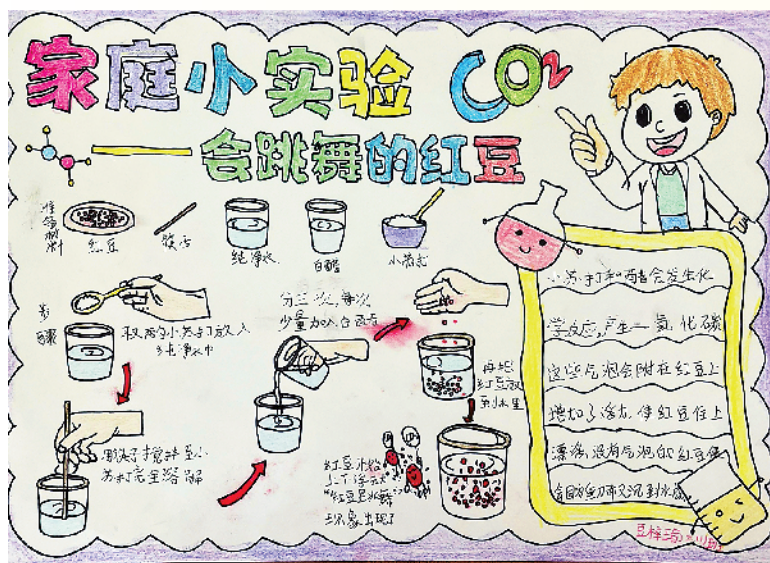 家庭小实验 CO2
会跳舞的红豆
准备材料
红豆
筷子
纯净水
白醋
小苏打
步骤
取两勺小苏打放入
纯净水中
用筷子搅拌至小
苏打完全溶解
分三次，每次
少量加入白醋
再把
红豆放
到水里
红豆开始
上下浮动
现象出现了
小苏打和醋会发生化
学反应，产生二氧化碳
这些气泡会附在红豆上
增加了浮力，使红豆往上
漂浮，没有气泡的红豆